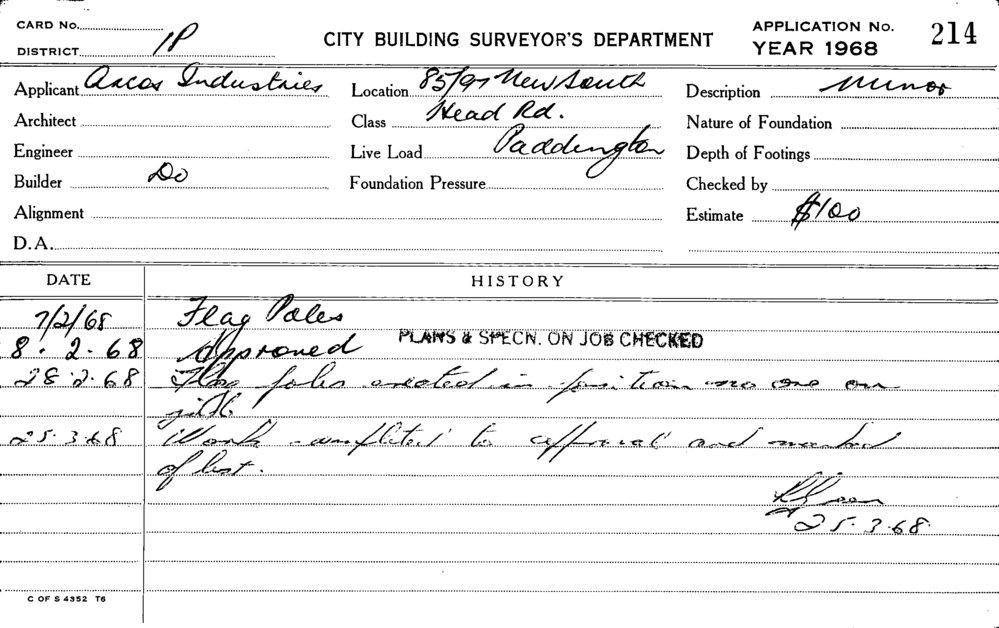 CARD No.
DISTRICT 1P
CITY BUILDING SURVEYOR'S DEPARTMENT
APPLICATION No. 214
YEAR 1968
Applicant Arcos Industries
Location 85/97 New South
Head Rd.
Paddington
Description Minor
Architect
Class
Nature of Foundation
Engineer
Live Load
Depth of Footings
Builder Do
Foundation Pressure
Checked by
Alignment
Estimate $100
D.A.
DATE HISTORY
7/2/68 Flag Poles
8.2.68 Approved PLANS & SPECN. ON JOB CHECKED
28.2.68 Flag poles erected in position no one on
job
25.3.68 Work completed to approval and marked
of list.
25.3.68.
C OF S 4352 T6